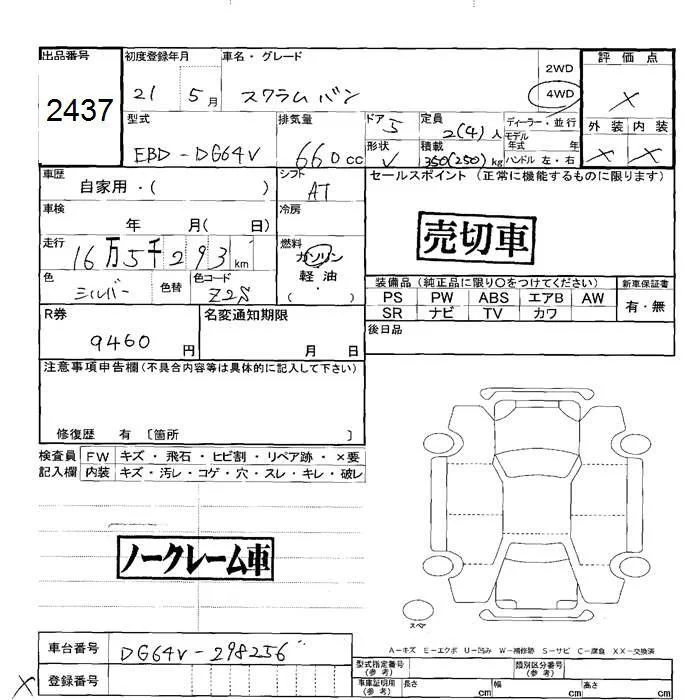 出品番号
2437
初度登録年月
21 5月
車名・グレード
スクラムバン
2WD
4WD
評価点
×
外装 内装
× ×
型式
EBD-DG64V
排気量
660cc
ドア
5
形状
V
定員
2(4)人
積載
350(250)kg
ディーラー・並行
モデル年式 年
ハンドル 左・右
車歴
自家用・( )
シフト
AT
車検
年 月( 日)
冷房
走行
16万5千293km
燃料
ガソリン
軽油
( ・ )
色
シルバー
色替
色コード
Z2S
セールスポイント (正常に機能するものに限ります)
売切車
装備品 (純正品に限り○をつけてください)
PS PW ABS エアB AW
SR ナビ TV カワ
新車保証書
有・無
後日品
R券
9460円
名変通知期限
月 日
注意事項申告欄(不具合内容等は具体的に記入して下さい)
修復歴 有 〔箇所 〕
検査員記入欄
FW キズ・飛石・ヒビ割・リペア跡・×要
内装 キズ・汚レ・コゲ・穴・スレ・キレ・破レ
ノークレーム車
スペア
A-キズ E-エクボ U-凹み W-補修跡 S-サビ C-腐食 XX-交換済
車台番号
DG64V-298256
× 登録番号
型式指定番号(参考)
類別区分番号(参考)
車庫証明用(参考)
長さ cm
幅 cm
高さ cm